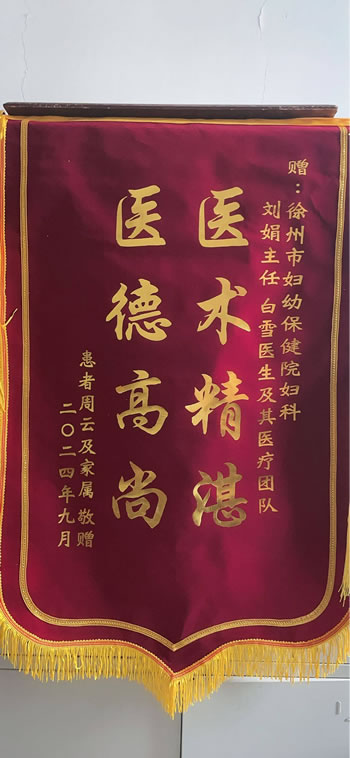 赠：徐州市妇幼保健院妇科
刘娟主任 白雪医生及其医疗团队
医术精湛
医德高尚
患者周云及家属 敬赠
二〇二四年九月